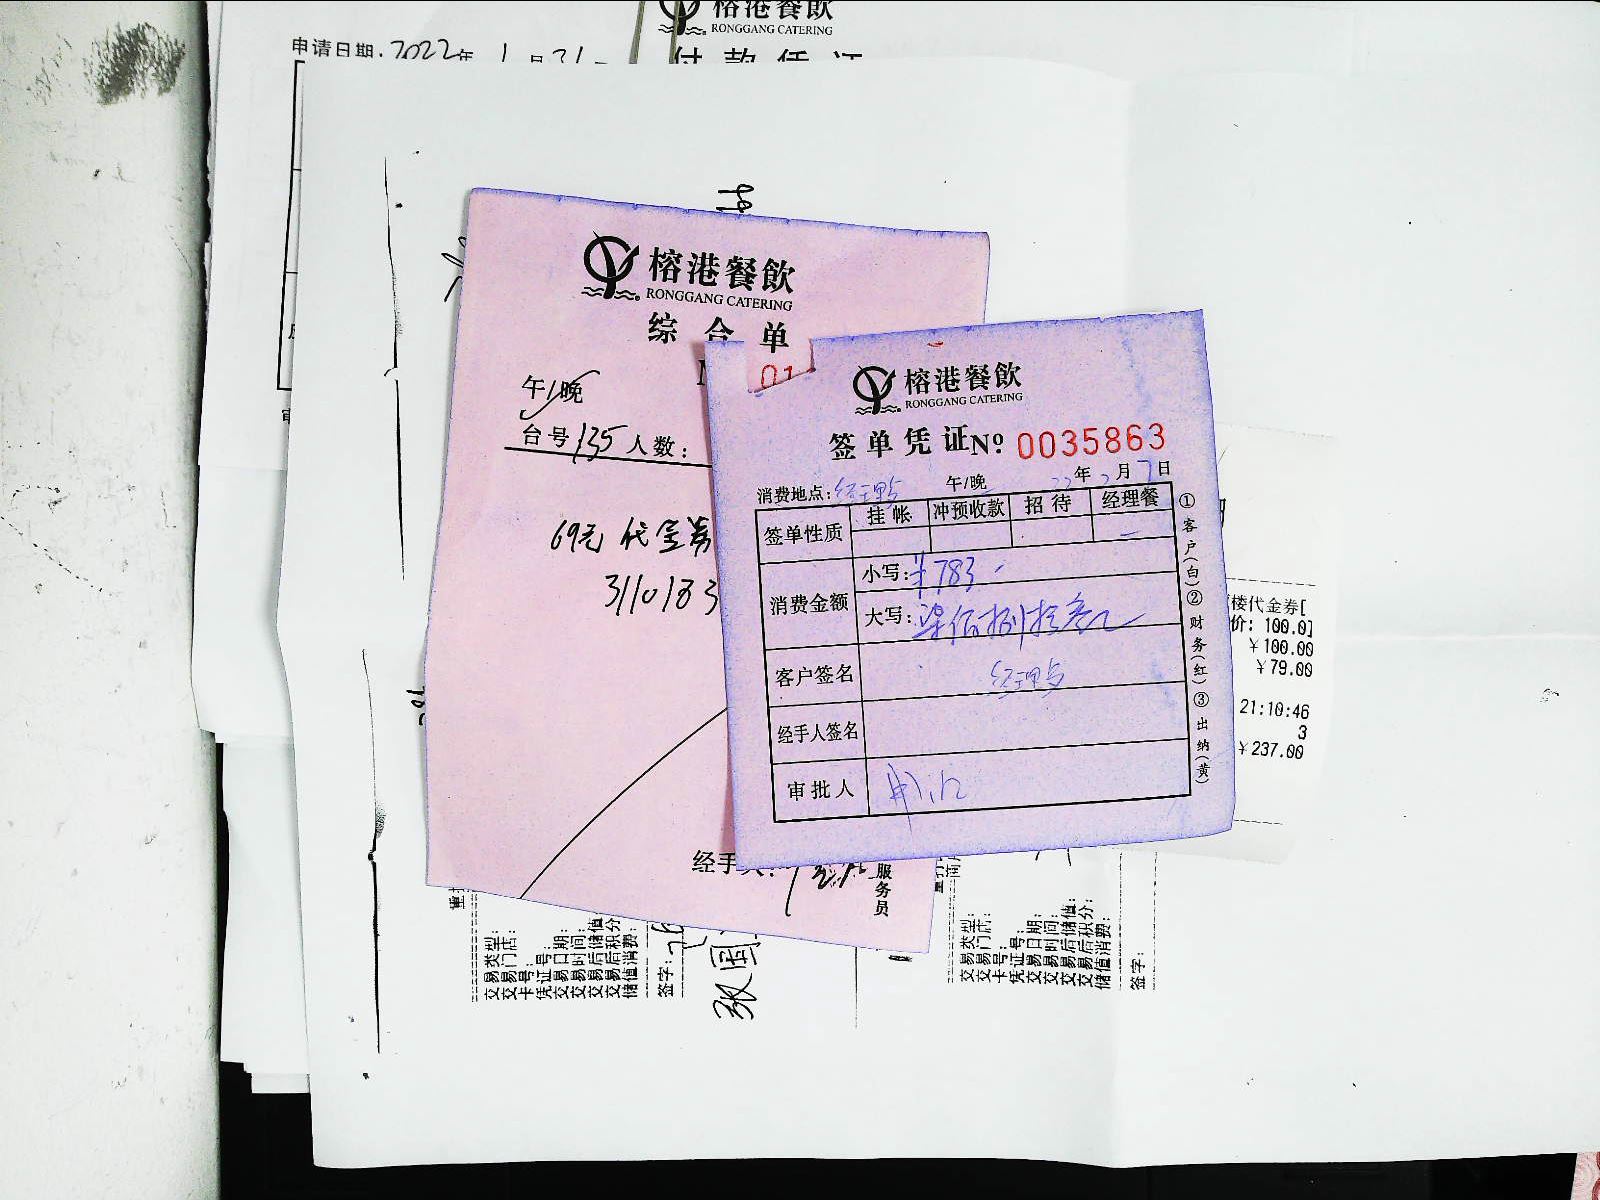 榕港餐飲
RONGGANG CATERING
付款凭证
申请日期:2022年1月31
榕港餐飲
RONGGANG CATERING
综合单
01
午/晚
台号135人数:
69元代金券
3110183
经手人:
服务员
榕港餐飲
RONGGANG CATERING
签单凭证No: 0035863
消费地点:经理餐 午/晚 22年2月7日
签单性质 挂帐 冲预收款 招待 经理餐
消费金额 小写:¥783
大写:柒佰捌拾叁元
客户签名 经理餐
经手人签名
审批人
①客户(白)②财务(红)③出纳(黄)
楼代金券[
价: 100.0]
￥100.00
￥79.00
21:10:46
3
￥237.00
交易类型:
交易门店:
卡号:
凭证号:
交易日期:
交易时间:
交易后储值:
交易后积分:
储值消费:
签字:
张国
交易类型:
交易门店:
卡号:
凭证号:
交易日期:
交易时间:
交易后储值:
交易后积分:
储值消费:
签字: